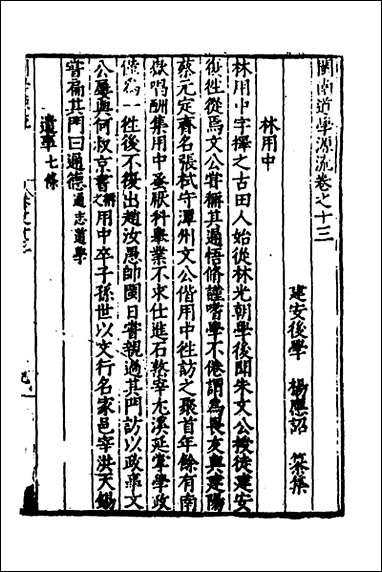 閩南道學源流卷之十三
建安後學 楊應詔 纂集
林用中
林用中字擇之古田人始從林光朝學後聞朱文公授徒建安
復徃從焉文公甞稱其通悟脩謹嗜學不倦謂為畏友與建陽
蔡元定齊名張栻守潭州文公偕用中徃訪之聚首年餘有南
嶽唱酬集用中蚤厭科舉業不求仕進石𡼖宰尤溪延掌學政
僅為一徃後不復出趙汝愚帥閩日甞親過其門訪以政事文
公屢與何叔京書稱用中卒子孫世以文行名家邑宰洪天錫
甞扁其門曰通德通志道學
遺事七條